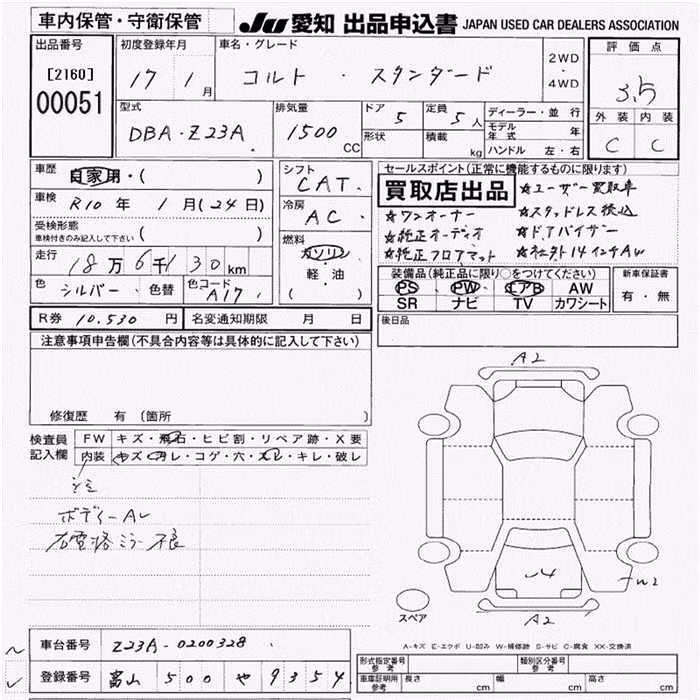 車内保管・守衛保管
JU 愛知 出品申込書 JAPAN USED CAR DEALERS ASSOCIATION
出品番号
[2160]
00051
初度登録年月
17 1月
車名・グレード
コルト ・ スタンダード
2WD
・
4WD
評価点
3.5
外装 内装
C C
型式
DBA-Z23A
排気量
1500 CC
ドア
5
定員
5人
形状
積載 kg
ディーラー・並行
モデル年式 年
ハンドル 左・右
車歴 自家用・( )
車検 R10年 1月(24日)
受検形態
車検付きのみ記入して下さい ( )
走行 18万6千130km
色 シルバー 色替 色コード A17
R券 10.530円 名変通知期限 月 日
シフト
CAT
冷房
AC
燃料
ガソリン
軽・油
( )
セールスポイント(正常に機能するものに限ります)
買取店出品
☆ユーザー買取車
☆ワンオーナー
☆スタッドレス積込
☆純正オーディオ
☆ドアバイザー
☆純正フロアマット
☆社外14インチAW
装備品(純正品に限り○をつけてください)
PS PW エアB AW
SR ナビ TV カワシート
新車保証書
有・無
後日品
注意事項申告欄(不具合内容等は具体的に記入して下さい)
修復歴 有 (箇所 )
検査員記入欄
FW キズ・飛石・ヒビ割・リペア跡・X要
内装 キズ・汚レ・コゲ・穴・スレ・キレ・破レ
ボディーAU
不良
A2
A2
スペア
A-キズ E-エクボ U-凹み W-補修跡 S-サビ C-腐食 XX-交換済
車台番号 Z23A-0200328
登録番号 富山 500 や 9354
形式指定番号 参考
類別区分番号 参考
車庫証明用 参考 長さ cm 幅 cm 高さ cm